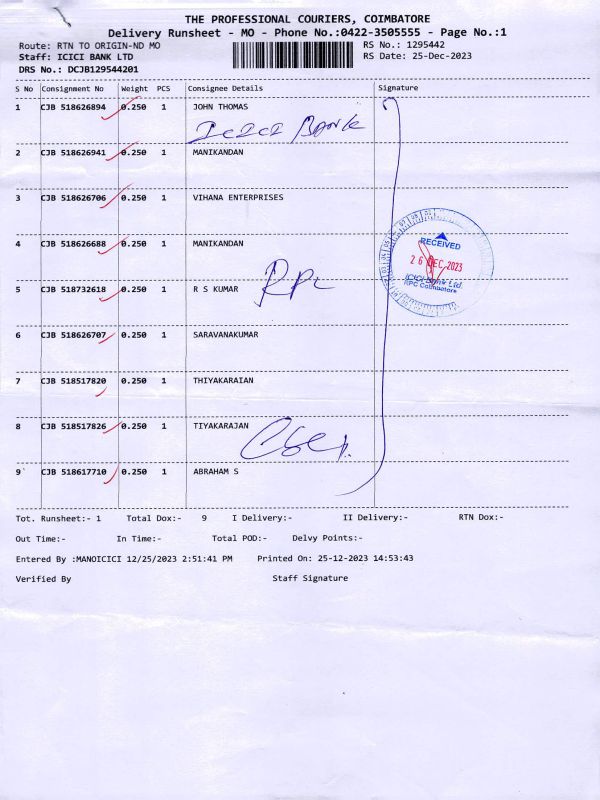 THE PROFESSIONAL COURIERS, COIMBATORE
Delivery Runsheet - MO - Phone No.:0422-3505555 - Page No.:1
Route: RTN TO ORIGIN-ND MO RS No.: 1295442
Staff: ICICI BANK LTD RS Date: 25-Dec-2023
DRS No.: DCJB129544201
S No Consignment No Weight PCS Consignee Details Signature
1 CJB 518626894 0.250 1 JOHN THOMAS
ICICI Bank
2 CJB 518626941 0.250 1 MANIKANDAN
3 CJB 518626706 0.250 1 VIHANA ENTERPRISES
4 CJB 518626688 0.250 1 MANIKANDAN
RECEIVED
26 DEC 2023
ICICI Bank Ltd.
RPC Coimbatore
RPC
5 CJB 518732618 0.250 1 R S KUMAR
6 CJB 518626707 0.250 1 SARAVANAKUMAR
7 CJB 518517820 0.250 1 THIYAKARAIAN
8 CJB 518517826 0.250 1 TIYAKARAJAN
9 CJB 518617710 0.250 1 ABRAHAM S
Tot. Runsheet:- 1 Total Dox:- 9 I Delivery:- II Delivery:- RTN Dox:-
Out Time:- In Time:- Total POD:- Delvy Points:-
Entered By :MANOICICI 12/25/2023 2:51:41 PM Printed On: 25-12-2023 14:53:43
Verified By Staff Signature